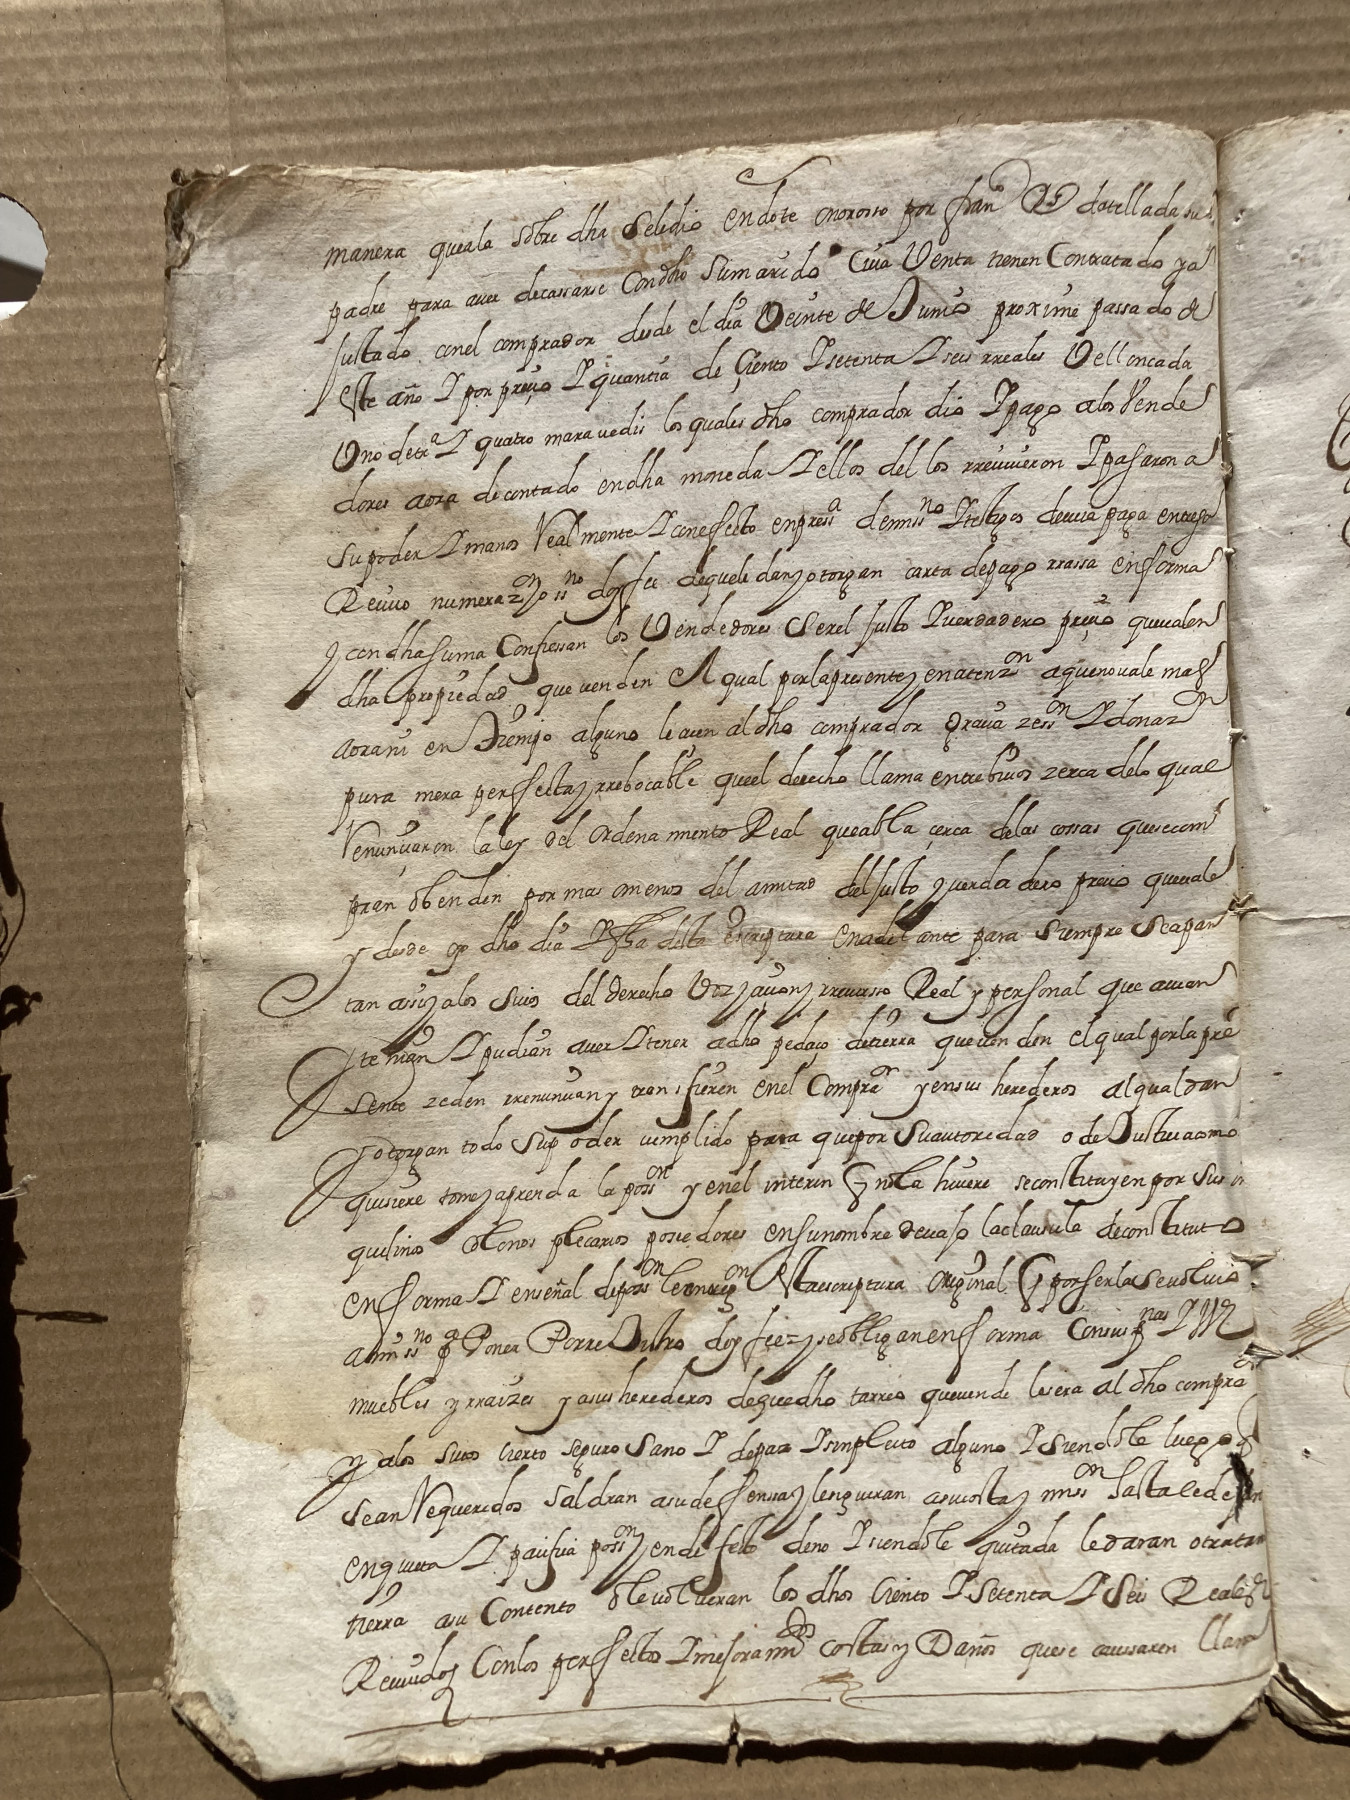 manera queala sobre dha seledio endote onoroso por fran^co datellada su
padre para aver decassarse Condho Sumarido Cuia Venta tienen Contratado ya
Justado conel comprador desde el dia Veinte de Junio proximo passado de
este año Y por preçio Y quantia de Çiento Ysetenta Y seis rreales Vellon cada
Uno detr^a Y quatro maravedis los quales dho comprador dio Ypago alos Vende
dores aora decontado endha moneda Y ellos del los rrezivieron Ypasaron a
supoder Y manos Realmente Y conefecto enpress^a demiss^no Ytestigos decuia paga entrego
Reziuo numeraz^on Yo ss^no doy fee dequele danyotorgan carta depago rrassa enforma
y condhasuma Confiessan los Vendedores Serel Justo Yverdadero preçio quevalen
dha propiedad que venden A qual porlapresentey enatenz^on aquenovale mas
aorani en tiempo alguno leacen aldho comprador graçia zess^on Y donaz^on
pura mera perffectay rrebocable queel derecho llama entrebiuos zerca delo qual
Renunçiaron laley del ordenamiento Real queabla çerca delas cossas quesecom
pran obenden por mas omenos del amitad deljusto yverdadero preçio quevale
y desde oy dho dia Yfha desta escriptura enadelante para siempre Seapar
tan asiyalos suios del derecho Vozjaçiony rrecurso Real y personal que avian
y tenian Y pudian aver Ytener adho pedaço detierra quevenden el qual porlapre
sente zeden rrenunciany transfieren enel Compra^or yensus herederos alqualdan
yotorgan todo Supoder cumplido para quepor Suautoridad o deJusticiacomo
quisiere tomeyaprenda la poss^on y enel interin q nola huuere seconstituyen por sus in
quilinos colonos precarios posedores ensunombre devajo laclausula deconstituto
enforma Y enseñal deposs^on leentreg^on Esta escriptura original q porserlasevoluio
amiss^no p^a Poner Porre Jistro doy fee yseobligan enfforma Consus p^nas Y
muebles yrraizes yasus herederos dequedho tarreo quevende lesera al dho compra^or
y alos suios cierto seguro sano Y depaz Ysinpleito alguno Ysiendole luego q
sean Requeridos saldran asudefenssay lesguiran asucostay hastaledejar
enquieta Y paçifica poss^on yendefecto deno Ysiendole quitada ledaran otratan
tierra asu Contento olevolueran los dhos Ciento Ysetenta Y Seis Reales
Rezividos Conlos perffectos Ymejoram^tos costasy Daños quese caussaren